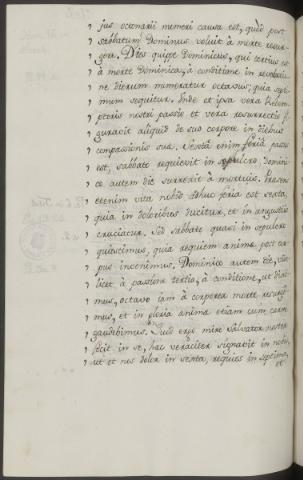 , jus octonarii numeri causa est, quod post
, sabbatum Dominus voluit à morte resur-
, gere. Dies quippe Dominicus, qui tertius est
, à morte Dominica, à conditione in revolutio-
, ne dierum numeratur octavus, quia septi-
, mum sequitur. Unde et ipsa vera Redem-
, ptoris nostri passio et vera resurrectio fi-
, guravit aliquid de suo corpore in diebus
, passionis suæ. Sexta enim feria passus
, est, sabbato requievit in sepulcro, Domini-
, co autem die surrexit à mortuis. Præsens
, etenim vita nobis adhuc feria est sexta,
, quia in doloribus ducitur, et in angustiis
, cruciatur. Sed sabbato quasi in sepulcro
, quiescimus, quia requiem animæ post cor-
, pus invenimus. Dominico autem die, vide-
, licet à passione tertio, à conditione, ut dixi-
, mus, octavo jam à corporea morte resurgi-
, mus, et in gloria animæ etiam cum carne
, gaudebimus. Quod ergo mire Salvator noster
, fecit in se, hac veraciter signavit in nobis,
, ut et nos dolor in sexta, requies in septima,
et